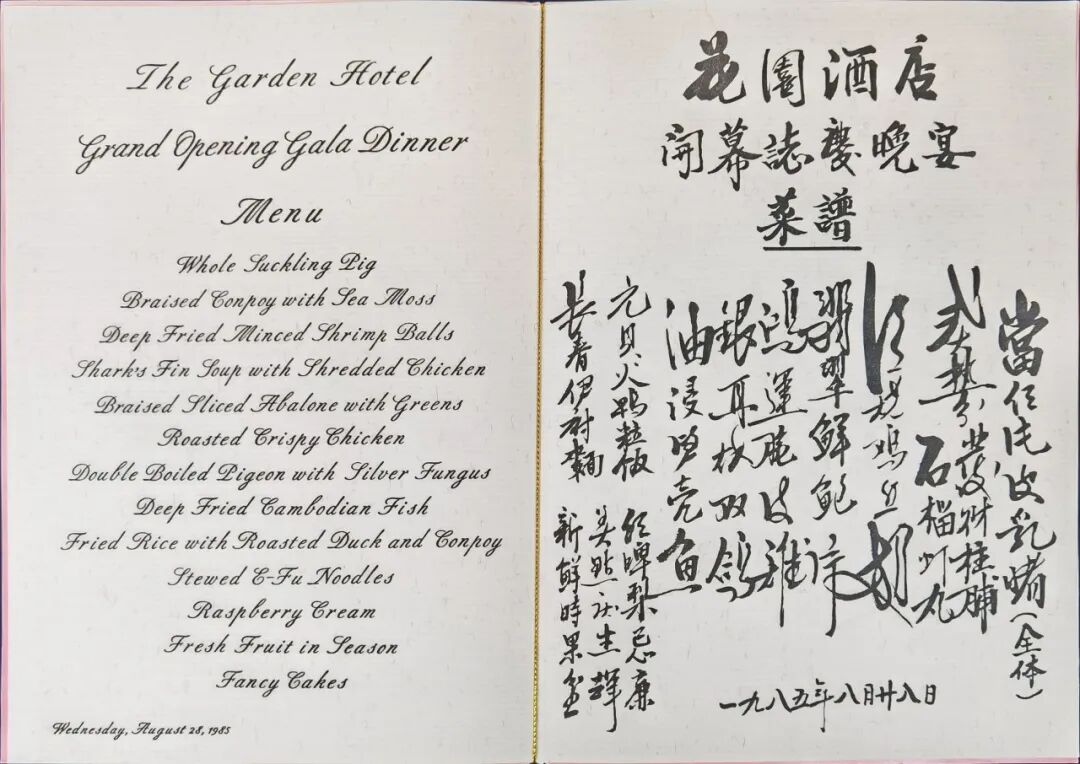 The Garden Hotel
Grand Opening Gala Dinner
Menu
Whole Suckling Pig
Braised Conpoy with Sea Moss
Deep Fried Minced Shrimp Balls
Shark's Fin Soup with Shredded Chicken
Braised Sliced Abalone with Greens
Roasted Crispy Chicken
Double Boiled Pigeon with Silver Fungus
Deep Fried Cambodian Fish
Fried Rice with Roasted Duck and Conpoy
Stewed E-Fu Noodles
Raspberry Cream
Fresh Fruit in Season
Fancy Cakes
Wednesday, August 28, 1985
花園酒店
開幕誌慶晚宴
菜譜
當红化皮乳豬(全体)
發财桂脯
石榴虾丸
红烧鸡丝翅
翡翠鲜鲍片
鴻運脆皮雞
銀耳炖双鸽
油浸笋壳魚
元貝火鸭粒飯
長春伊府麵
红啤梨忌廉
美點庆生輝
新鮮時果盆
一九八五年八月廿八日